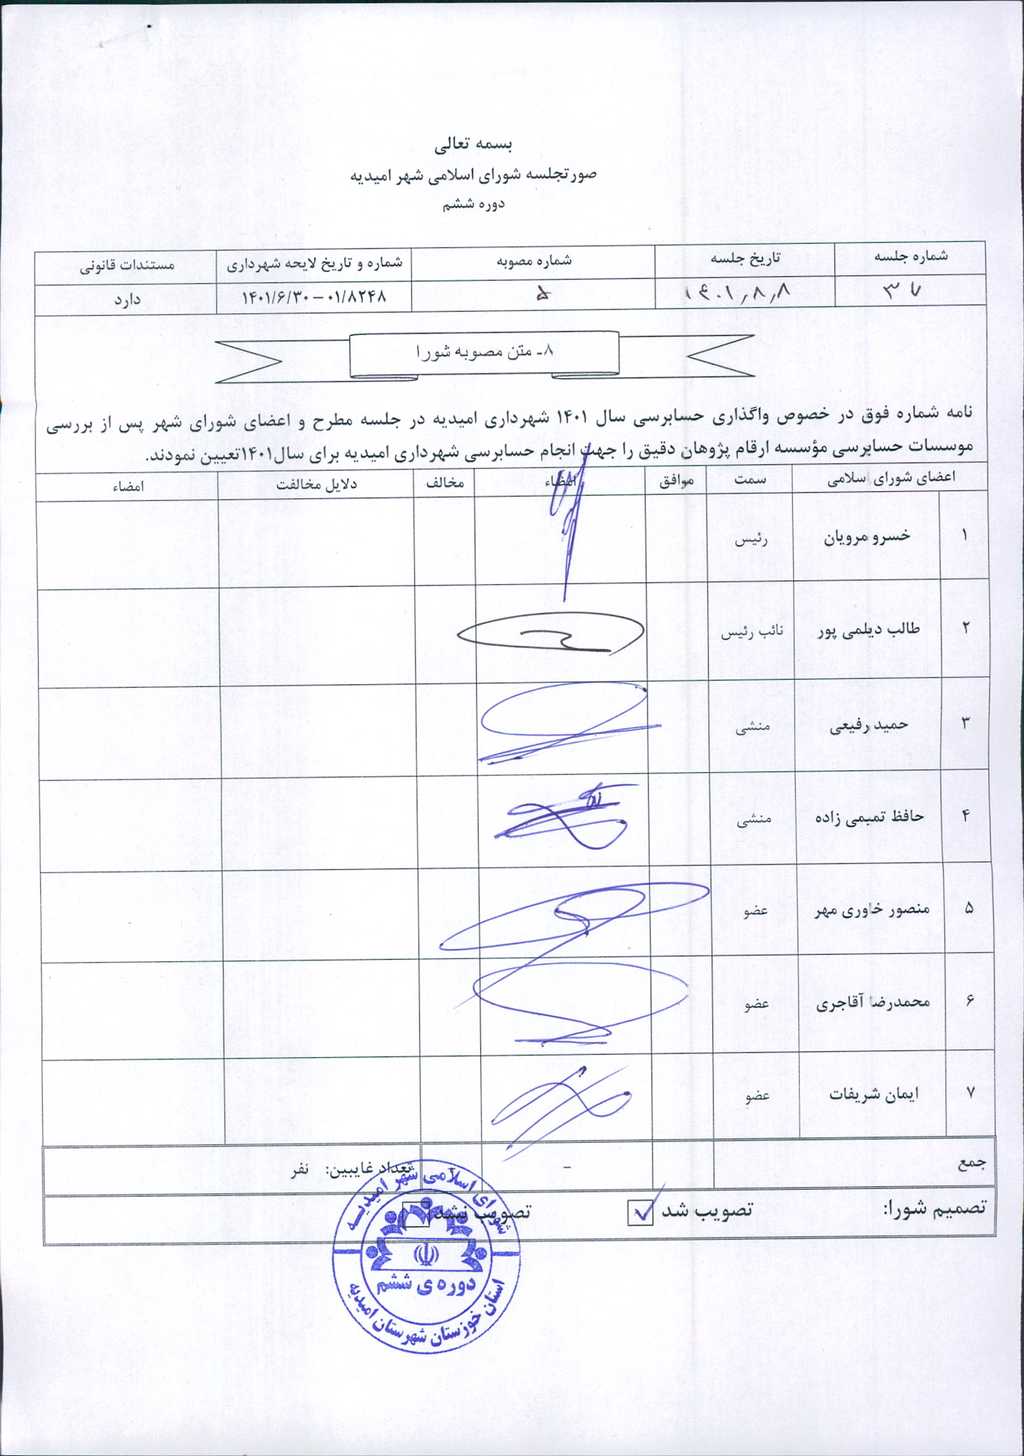 بسمه تعالی
صورتجلسه شورای اسلامی شهر امیدیه
دوره ششم
شماره جلسه تاریخ جلسه شماره مصوبه شماره و تاریخ لایحه شهرداری مستندات قانونی
۳۷ ۱۴۰۱٫۸٫۸ ۵ ۰۱/۸۲۴۸–۱۴۰۱/۶/۳۰ دارد
۸ـ متن مصوبه شورا
نامه شماره فوق در خصوص واگذاری حسابرسی سال ۱۴۰۱ شهرداری امیدیه در جلسه مطرح و اعضای شورای شهر پس از بررسی
موسسات حسابرسی مؤسسه ارقام پژوهان دقیق را جهت انجام حسابرسی شهرداری امیدیه برای سال۱۴۰۱تعیین نمودند.
اعضای شورای سلامی سمت موافق امضاء مخالف دلایل مخالفت امضاء
۱ خسرو مرویان رئیس
۲ طالب دیلمی پور نائب رئیس
۳ حمید رفیعی منشی
۴ حافظ تمیمی زاده منشی
۵ منصور خاوری مهر عضو
۶ محمدرضا آقاجری عضو
۷ ایمان شریفات عضو
جمع – تعداد غایبین: نفر
تصمیم شورا: تصویب شد ✓ تصویب نشد
شورای اسلامی شهر امیدیـــه
دوره ی ششم
استان خوزستان شهرستان امیدیه